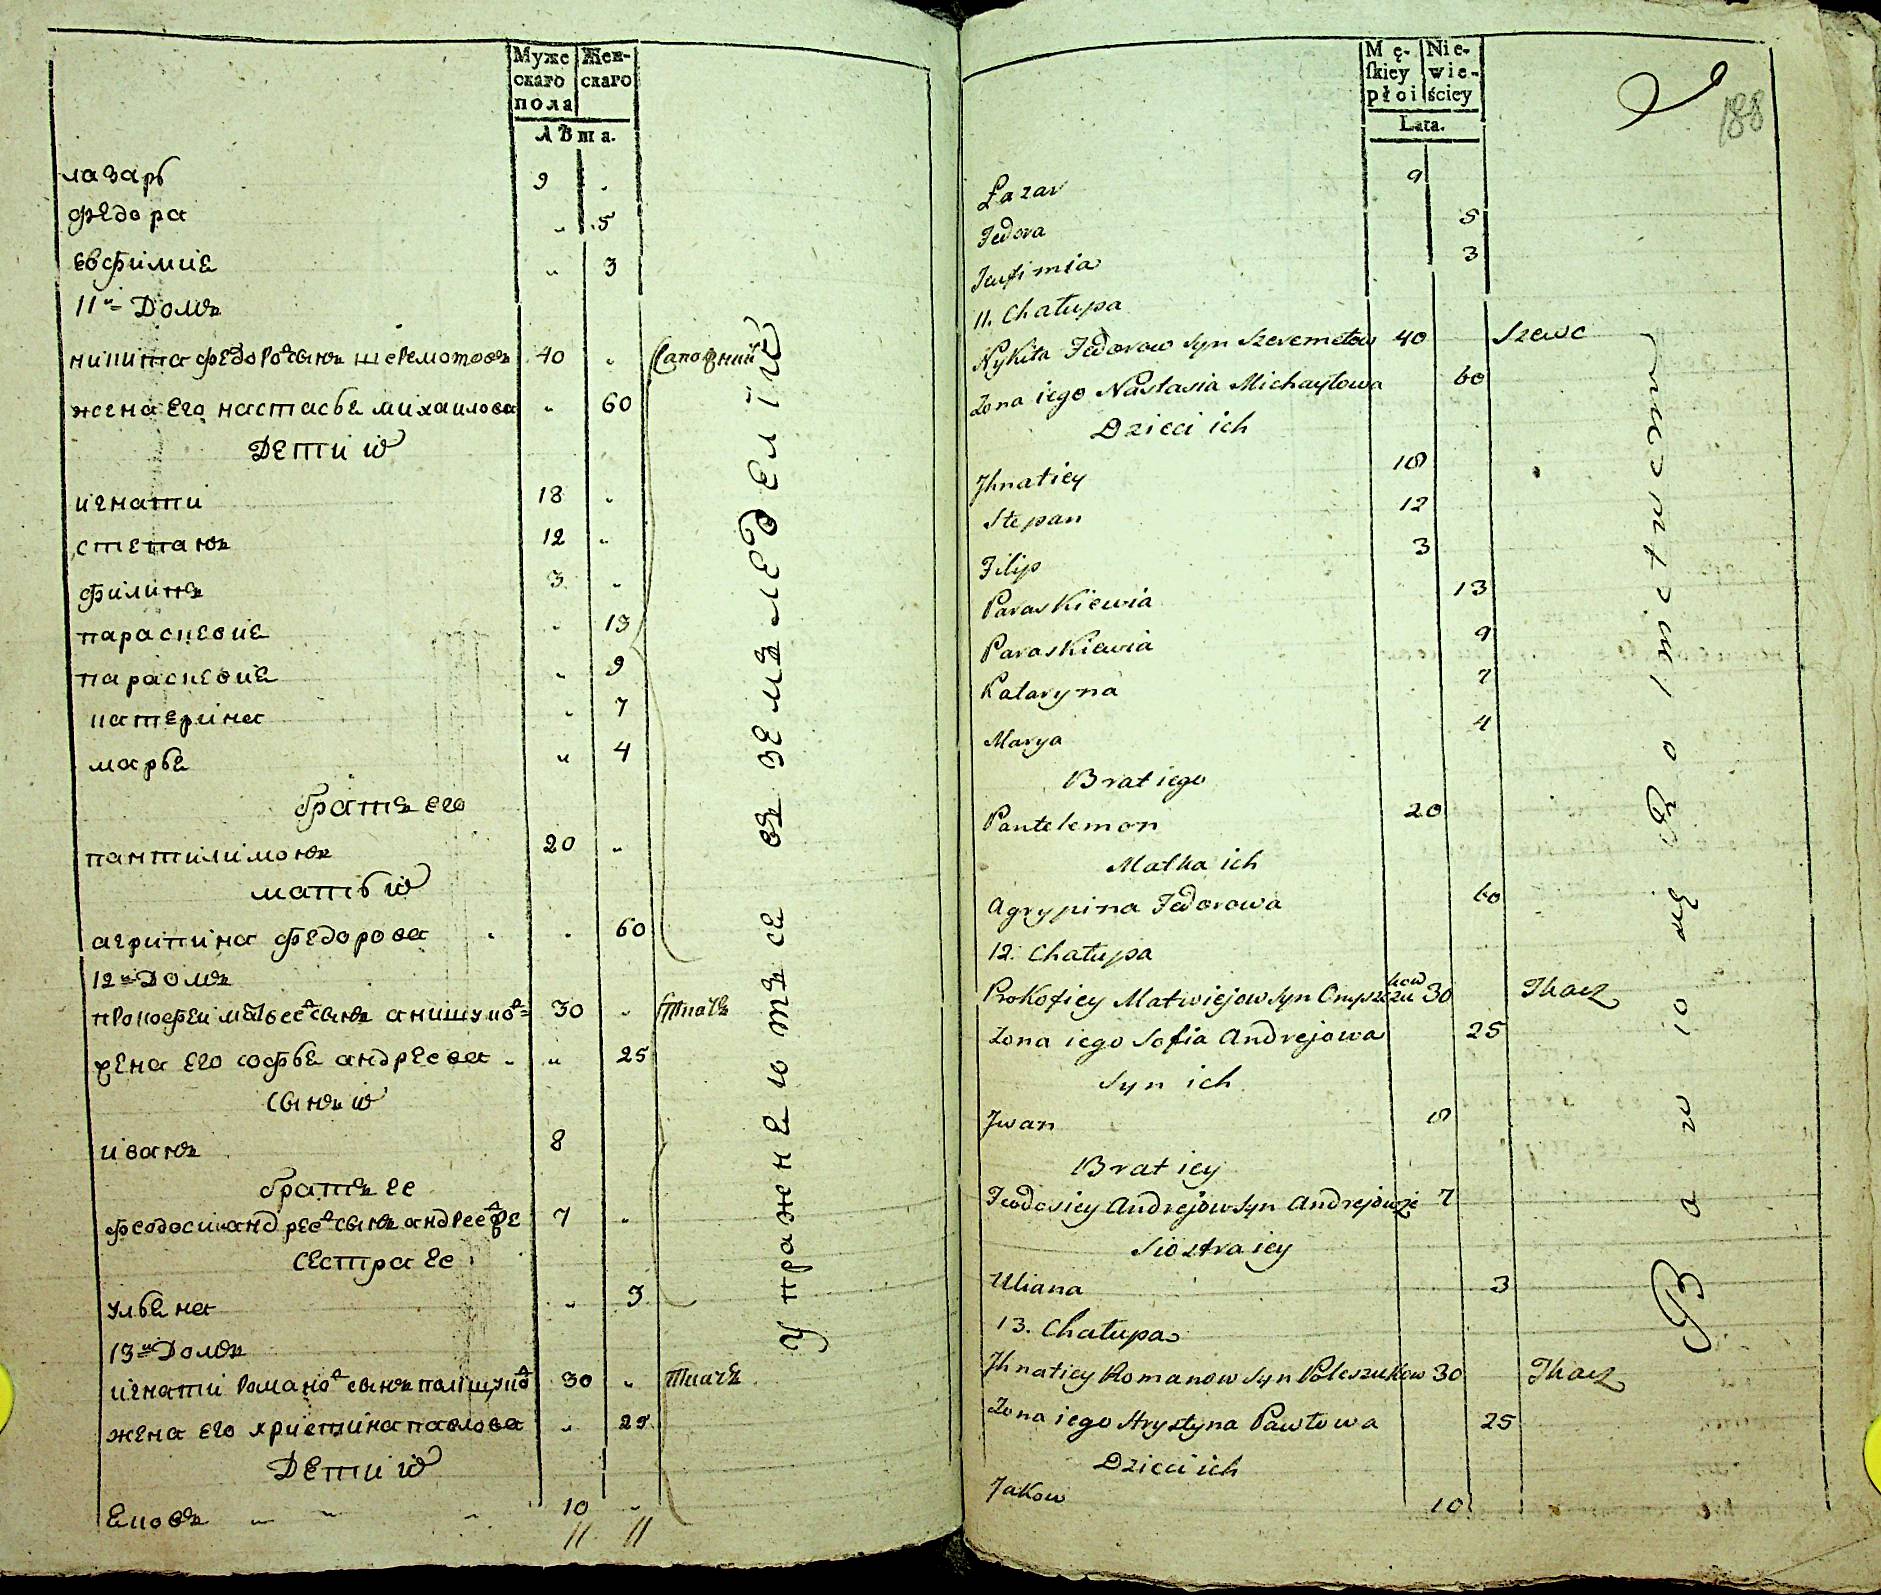 Муже Жен-
скаго скаго
пола
Лѣта.
лазарь 9 „
федора „ 5
евфимие „ 3
11й Домъ
никита федоров сынъ шереметовъ 40 „ Сапожникъ
жена его настасье михаилова „ 60
Дети их
игнати 18 „
степанъ 12 „
филипъ 3 „
параскевие „ 13
параскевие „ 9
катерина „ 7
марье „ 4
братъ его
пантилимонъ 20 „
мать их
агрипина федорова „ 60
12й Домъ
прокофеи матвеев сынъ 30 „ Ткачъ
жена его софье андреева „ 25
сынъ их
иванъ 8
братъ ее
феодоси андреев сынъ 7 „
Сестра ее
улбена „ 3
13й Домъ
игнати Романов сынъ полищуков 30 „ Ткачъ
жена его христина павлова „ 25
Дети их
Ековъ „ „ „ 10 „
11 11
Упражнеютъсе въ земъледелiи
188
Mę- Nie-
ſkiey wie-
płci ściey
Lata.
Łazar 9
Fedora 5
Jeufimia 3
11. Chałupa
Nykita Fedorow syn Szeremetow 40 Szewc
Zona iego Nastasia Michayłowa 60
Dzieci ich
Jhnaticy 18
Stepan 12
Filip 3
Paraskiewia 13
Paraskiewia 9
Kataryna 7
Marya 4
Brat iego
Pantelemon 20
Matka ich
Agrypina Fedorowa 60
12. Chałupa
Prokoficy Matwiejow syn 30 Tkacz
Zona iego Sofia Andrejowa 25
Syn ich
Jwan 8
Brat iey
Feodosiey Andrejow syn 7
Siostra iey
Uliana 3
13. Chałupa
Jhnaticy Romanow syn Poleszukow 30 Tkacz
Zona iego Hrystyna Pawłowa 25
Dzieci ich
Jakow 10
Bawio się Rolnictwem